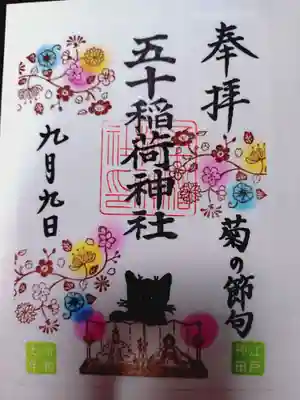 奉拝
菊の節句
五十稲荷神社
九月九日
江戸
神田